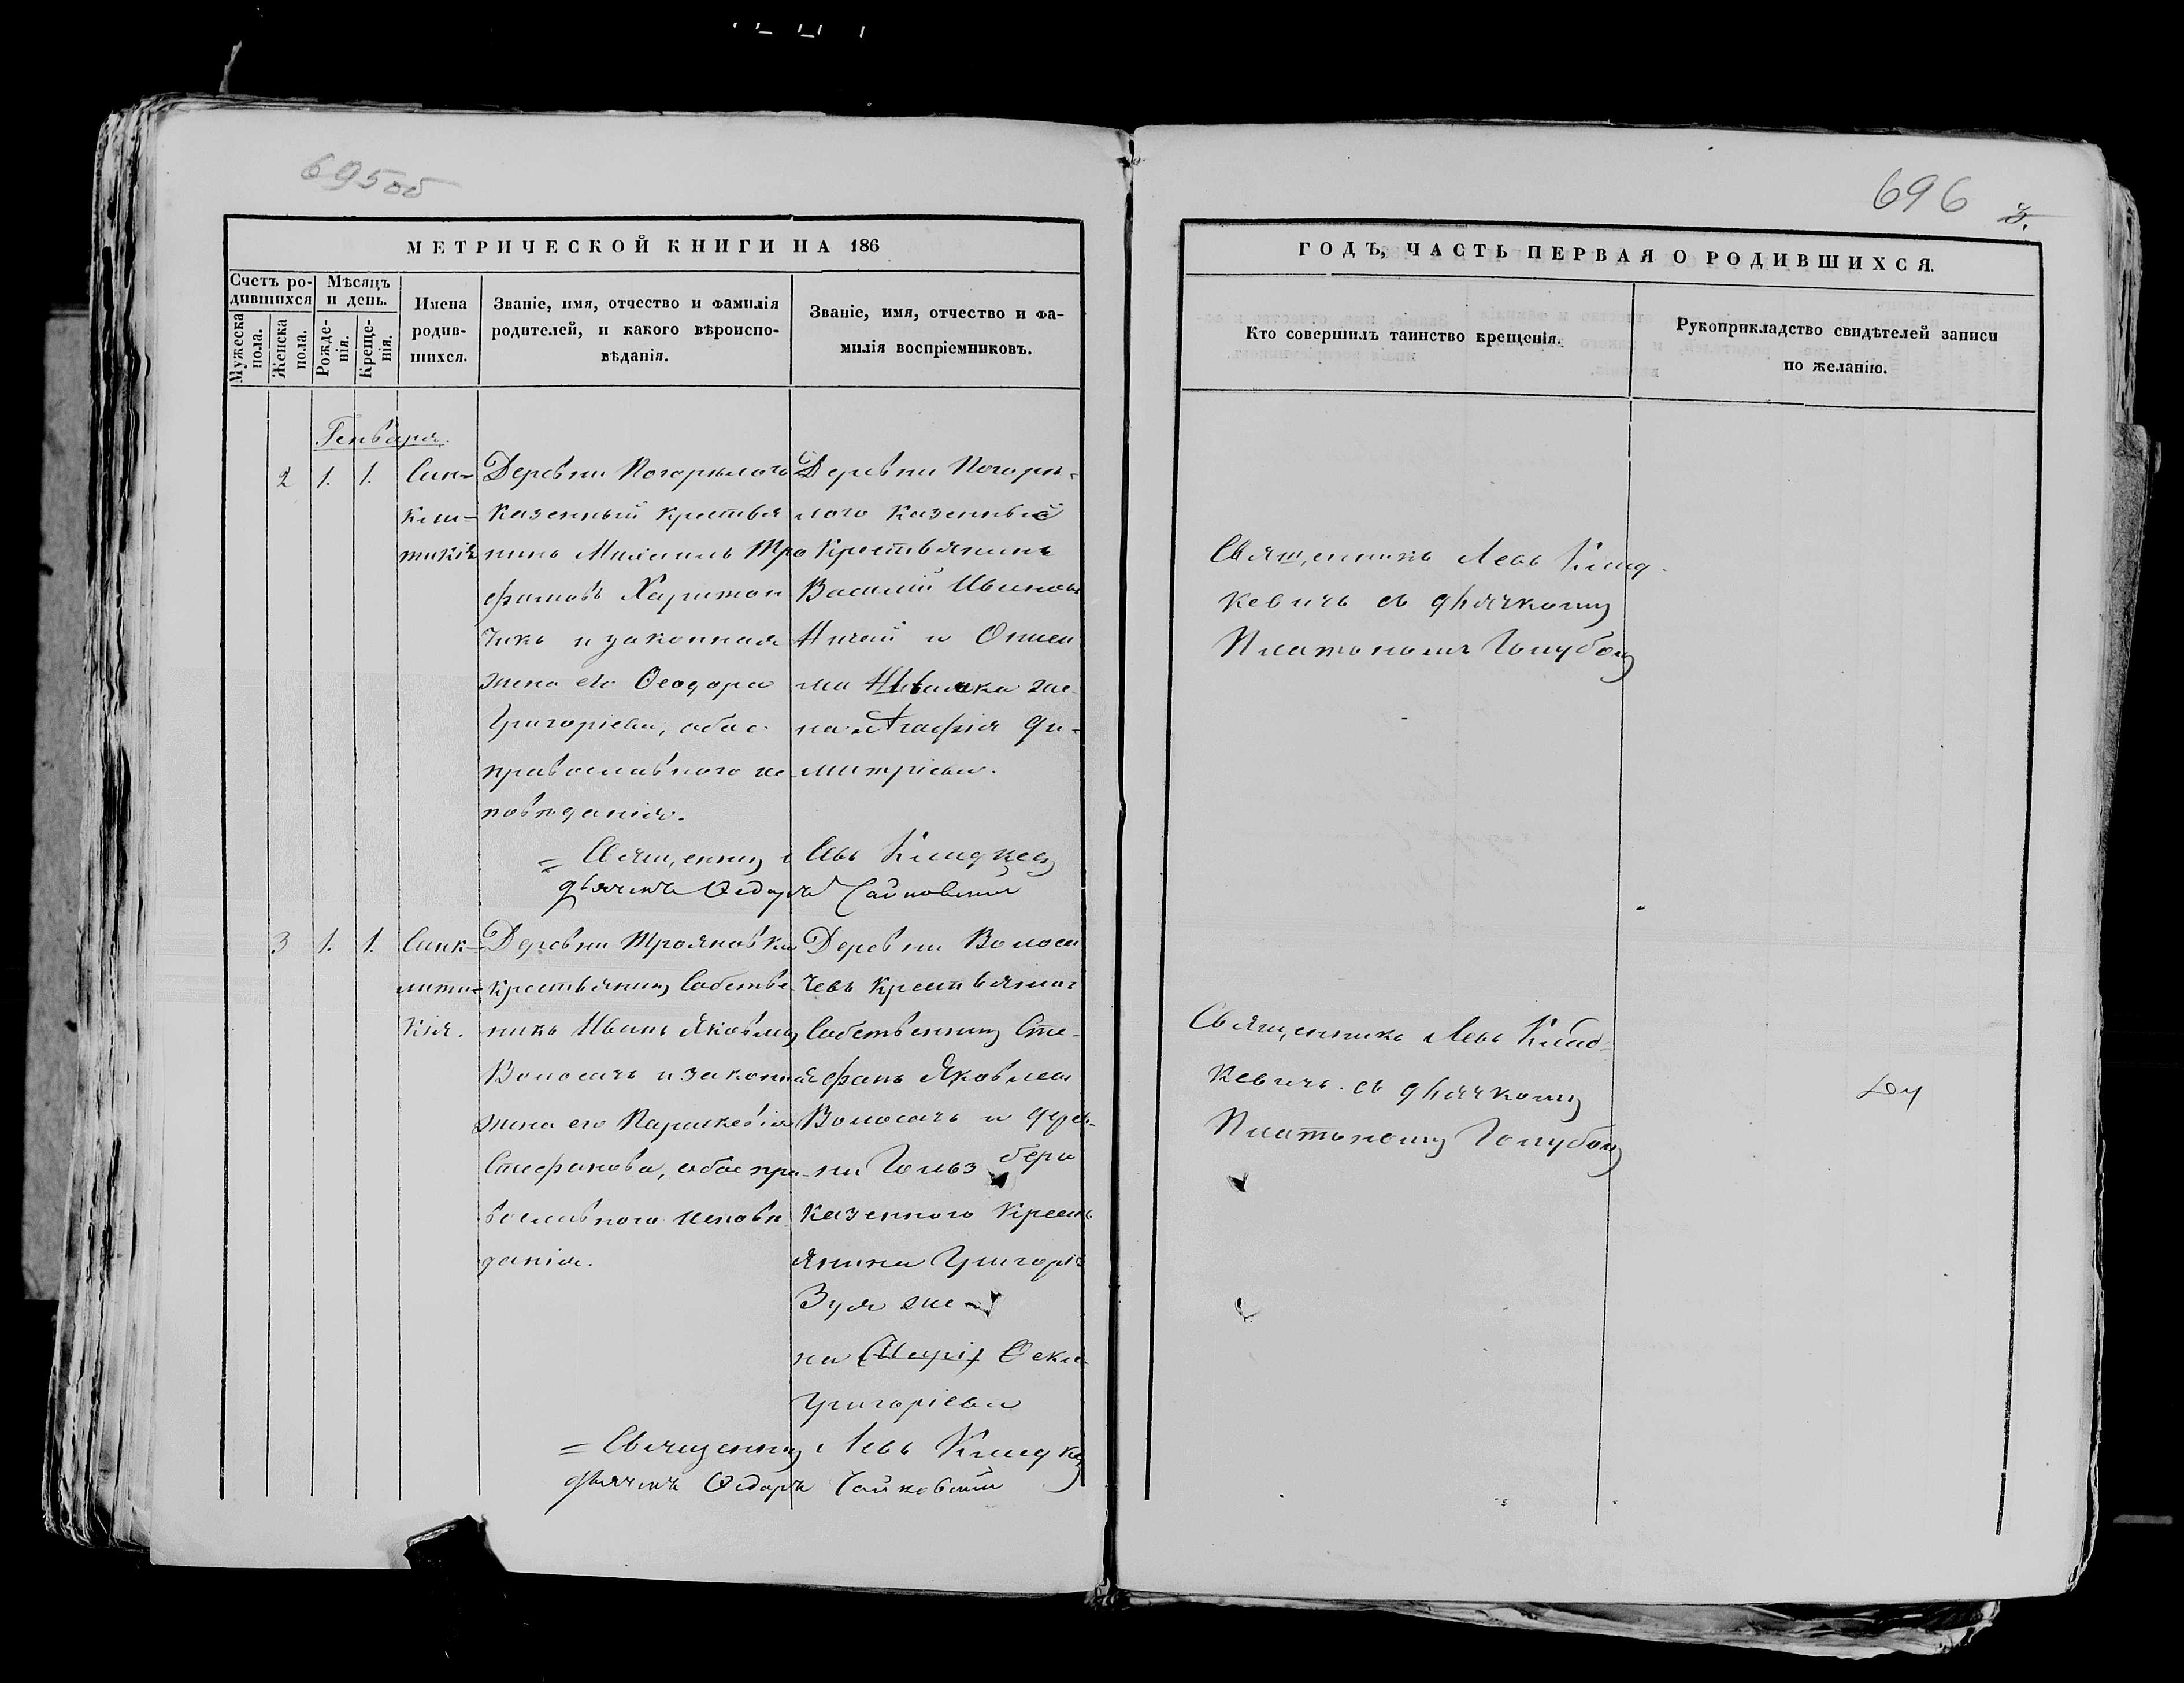 695об
696
МЕТРИЧЕСКОЙ КНИГИ НА 186
Счетъ ро-
дившихся
Мужеска
пола.
Женска
пола.
Мѣсяцъ
и день.
Рожде-
нія.
Креще-
нія.
Имена
родив-
шихся.
Званіе, имя, отчество и фамилія
родителей, и какого вѣроиспо-
вѣданія.
Званіе, имя, отчество и фа-
милія воспріемниковъ.
Генваря.
2
1.
1.
Син-
кли-
тикія
Деревни Погорѣлаго
Казенный крестья
нинъ Михаилъ Тро
фимовъ Харитон
чикъ и законная
жена его Ѳеодора
Григоріева, обое
православнаго ис
повѣданія.
Деревни Погорѣ-
лаго Казенный
Крестьянинъ
Василій Ивановъ
и Ониси
ма жe-
на Агафія Ди-
митріева.
= Священникъ Левъ
дьячекъ Ѳедоръ
3
1.
1.
Синк-
лити-
кия.
Деревни Трояновки
крестьянинъ Собстве
никъ Иванъ Яковлевъ
Волосачъ и законная
жена его Параскевія
Стефанова, обое пра-
вославного исповѣ
данія.
Деревни Волоса
чевъ крестьянинъ
Собственникъ Сте-
фанъ Яковлевъ
Волосачъ и дерев-
ни Гольз бера
Казенного Кресть
янина Григорія
Зуя же
на Ѳекла
Григоріева
= Священникъ Левъ
дьячекъ Ѳедоръ
ГОДЪ, ЧАСТЬ ПЕРВАЯ О РОДИВШИХСЯ.
Кто совершилъ таинство крещенія.
Рукоприкладство свидѣтелей записи
по желанію.
Священникъ Левъ
кевичъ съ дьячкомъ
Платономъ Голубовъ
Священникъ Левъ
кевичъ съ дьячкомъ
Платономъ Голубовъ